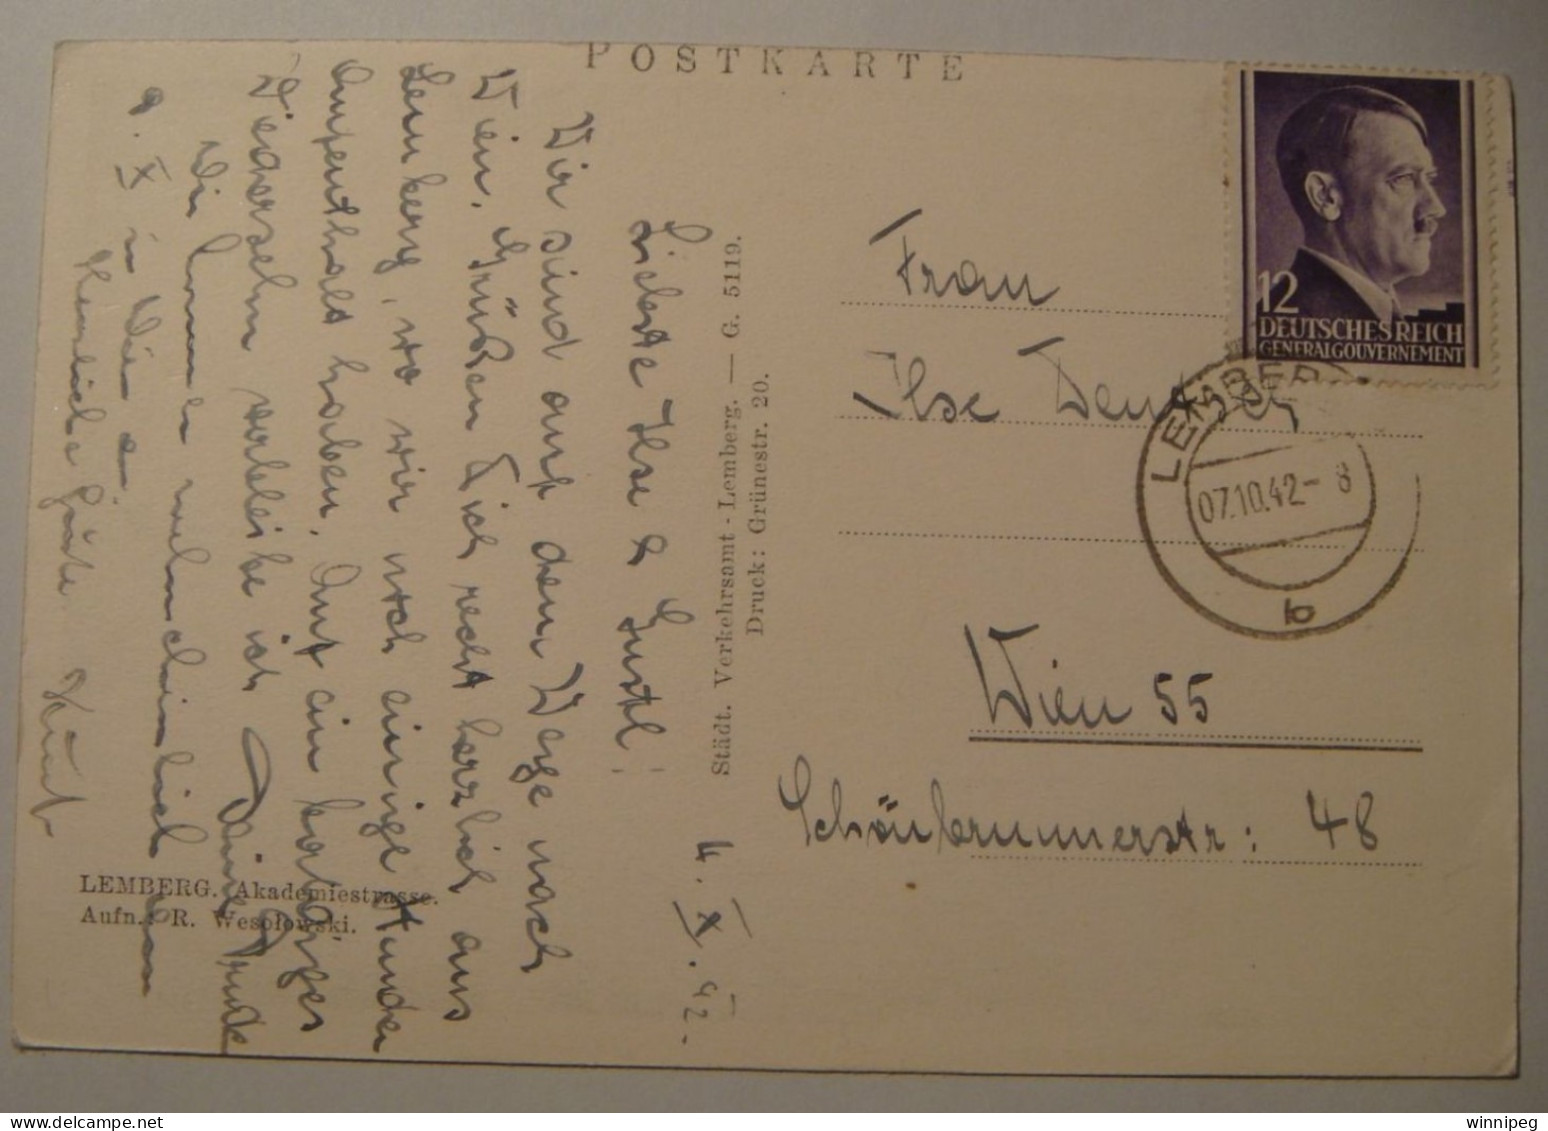 POSTKARTE
4.X.42.
Liebste Ilse & Gustl!
Wir sind auf dem Wege nach
Wien. Grüßen Dich recht herzlich aus
Lemberg, wo wir noch einige Stunden
Aufenthalt haben. Auf ein baldiges
Wiedersehn verbleibe ich Deine
Wir kommen wahrscheinlich am
9. X in Wien a.
Herzliche Grüße Kurt
LEMBERG. Akademiestrasse.
Aufn.: R. Wesołowski.
Städt. Verkehrsamt - Lemberg. — G. 5119.
Druck: Grünestr. 20.
12
DEUTSCHES REICH
GENERALGOUVERNEMENT
LEMBERG
07.10.42- 8
b
Frau
Ilse
Wien 55
Schönbrunnerstr: 48
winnipeg